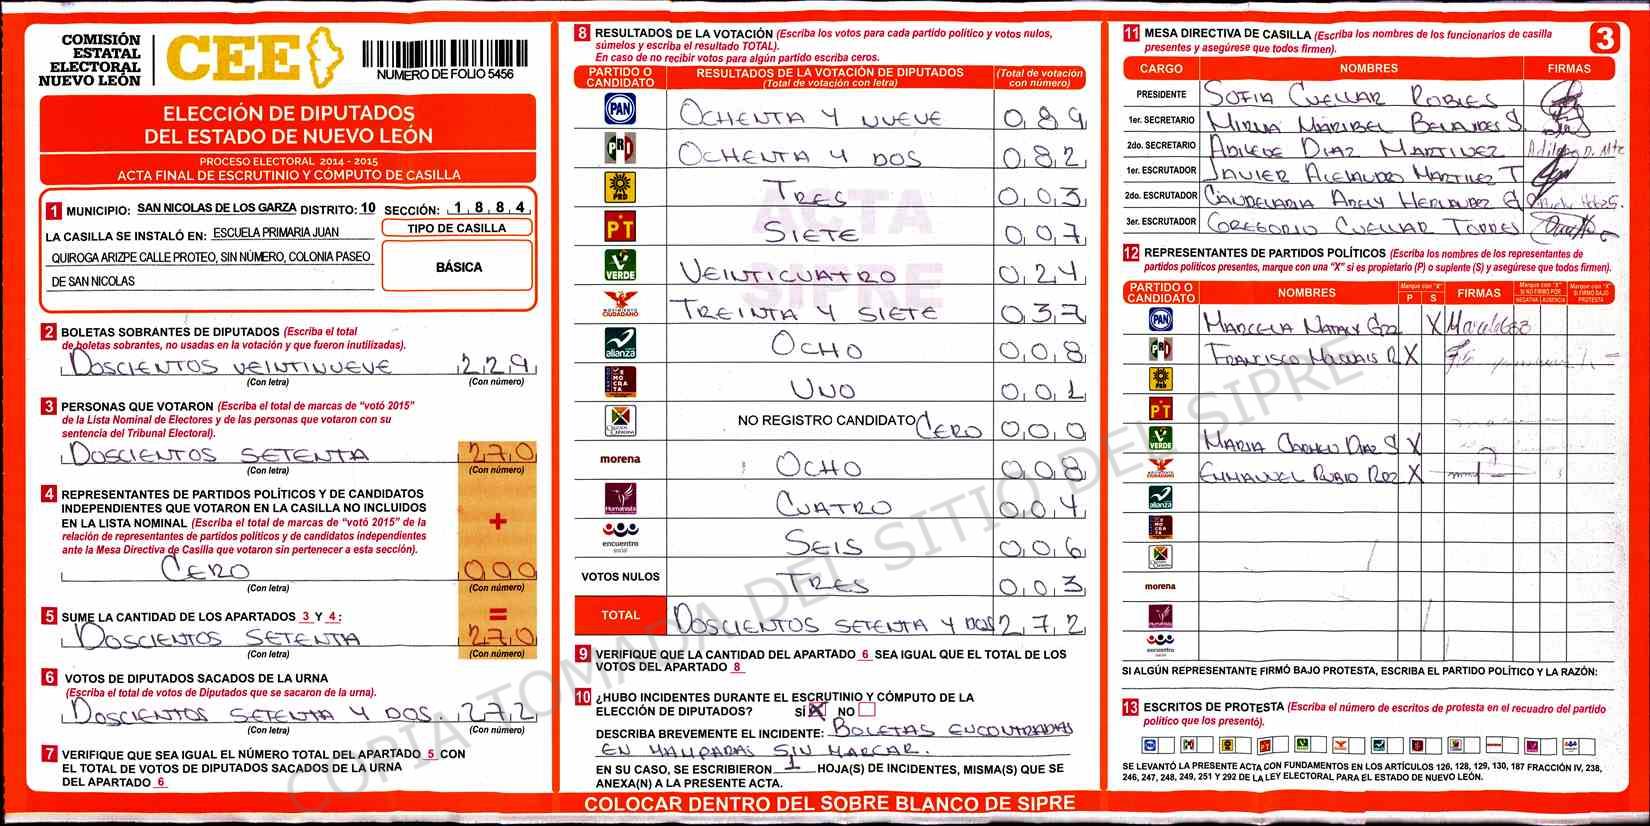 COMISIÓN
ESTATAL
ELECTORAL
NUEVO LEÓN
CEE
NUMERO DE FOLIO 5456
ELECCIÓN DE DIPUTADOS
DEL ESTADO DE NUEVO LEÓN
PROCESO ELECTORAL 2014 - 2015
ACTA FINAL DE ESCRUTINIO Y CÓMPUTO DE CASILLA
1 MUNICIPIO: SAN NICOLAS DE LOS GARZA DISTRITO: 10 SECCIÓN: 1884
LA CASILLA SE INSTALÓ EN: ESCUELA PRIMARIA JUAN
QUIROGA ARIZPE CALLE PROTEO, SIN NÚMERO, COLONIA PASEO
DE SAN NICOLAS
TIPO DE CASILLA
BÁSICA
2 BOLETAS SOBRANTES DE DIPUTADOS (Escriba el total
de boletas sobrantes, no usadas en la votación y que fueron inutilizadas).
DOSCIENTOS VEINTINUEVE 229
(Con letra) (Con número)
3 PERSONAS QUE VOTARON (Escriba el total de marcas de "votó 2015"
de la Lista Nominal de Electores y de las personas que votaron con su
sentencia del Tribunal Electoral).
DOSCIENTOS SETENTA 270
(Con letra) (Con número)
4 REPRESENTANTES DE PARTIDOS POLÍTICOS Y DE CANDIDATOS
INDEPENDIENTES QUE VOTARON EN LA CASILLA NO INCLUIDOS
EN LA LISTA NOMINAL (Escriba el total de marcas de "votó 2015" de la
relación de representantes de partidos políticos y de candidatos independientes
ante la Mesa Directiva de Casilla que votaron sin pertenecer a esta sección).
+
CERO 000
(Con letra) (Con número)
5 SUME LA CANTIDAD DE LOS APARTADOS 3 Y 4: =
DOSCIENTOS SETENTA 270
(Con letra) (Con número)
6 VOTOS DE DIPUTADOS SACADOS DE LA URNA
(Escriba el total de votos de Diputados que se sacaron de la urna).
DOSCIENTOS SETENTA Y DOS 272
(Con letra) (Con número)
7 VERIFIQUE QUE SEA IGUAL EL NÚMERO TOTAL DEL APARTADO 5 CON
EL TOTAL DE VOTOS DE DIPUTADOS SACADOS DE LA URNA
DEL APARTADO 6
8 RESULTADOS DE LA VOTACIÓN (Escriba los votos para cada partido político y votos nulos,
súmelos y escriba el resultado TOTAL).
En caso de no recibir votos para algún partido escriba ceros.
PARTIDO O CANDIDATO RESULTADOS DE LA VOTACIÓN DE DIPUTADOS (Total de votación con letra) (Total de votación con número)
PAN OCHENTA Y NUEVE 089
PRD OCHENTA Y DOS 082
PRD TRES 003
PT SIETE 007
VERDE VEINTICUATRO 024
MOVIMIENTO CIUDADANO TREINTA Y SIETE 037
alianza OCHO 008
UNO 001
NO REGISTRO CANDIDATO CERO 000
morena OCHO 008
Humanista CUATRO 004
encuentro social SEIS 006
VOTOS NULOS TRES 003
TOTAL DOSCIENTOS SETENTA Y DOS 272
9 VERIFIQUE QUE LA CANTIDAD DEL APARTADO 6 SEA IGUAL QUE EL TOTAL DE LOS
VOTOS DEL APARTADO 8
10 ¿HUBO INCIDENTES DURANTE EL ESCRUTINIO Y CÓMPUTO DE LA
ELECCIÓN DE DIPUTADOS? SÍ X NO
DESCRIBA BREVEMENTE EL INCIDENTE: BOLETAS ENCONTRADAS
EN MAMPARAS SIN MARCAR.
EN SU CASO, SE ESCRIBIERON 1 HOJA(S) DE INCIDENTES, MISMA(S) QUE SE
ANEXA(N) A LA PRESENTE ACTA.
COLOCAR DENTRO DEL SOBRE BLANCO DE SIPRE
ACTA
SIPRE
COPIA TOMADA DEL SITIO DEL SIPRE
11 MESA DIRECTIVA DE CASILLA (Escriba los nombres de los funcionarios de casilla
presentes y asegúrese que todos firmen).
3
CARGO NOMBRES FIRMAS
PRESIDENTE SOFIA CUELLAR ROBLES
1er. SECRETARIO MIRNA MARIBEL BENAVIDES S.
2do. SECRETARIO ADILEDE DIAZ MARTINEZ
1er. ESCRUTADOR JAVIER ALEJANDRO MARTINEZ T
2do. ESCRUTADOR CANDELARIA ARELY HERNANDEZ
3er. ESCRUTADOR GREGORIO CUELLAR TORRES
12 REPRESENTANTES DE PARTIDOS POLÍTICOS (Escriba los nombres de los representantes de
partidos políticos presentes, marque con una "X" si es propietario (P) o suplente (S) y asegúrese que todos firmen).
PARTIDO O CANDIDATO NOMBRES Marque con "X" P S FIRMAS Marque con "X" SI NO FIRMÓ POR NEGATIVA AUSENCIA Marque con "X" SI FIRMÓ BAJO PROTESTA
PAN MARCELA NATALY GZZ X
FRANCISCO R X
PRD
PT
VERDE MARIA CARMEN DIAZ S X
EMMANUEL RUBIO RDZ X
alianza
morena
encuentro social
SI ALGÚN REPRESENTANTE FIRMÓ BAJO PROTESTA, ESCRIBA EL PARTIDO POLÍTICO Y LA RAZÓN:
13 ESCRITOS DE PROTESTA (Escriba el número de escritos de protesta en el recuadro del partido
político que los presentó).
SE LEVANTÓ LA PRESENTE ACTA CON FUNDAMENTOS EN LOS ARTÍCULOS 126, 128, 129, 130, 187 FRACCIÓN IV, 238,
246, 247, 248, 249, 251 Y 292 DE LA LEY ELECTORAL PARA EL ESTADO DE NUEVO LEÓN.